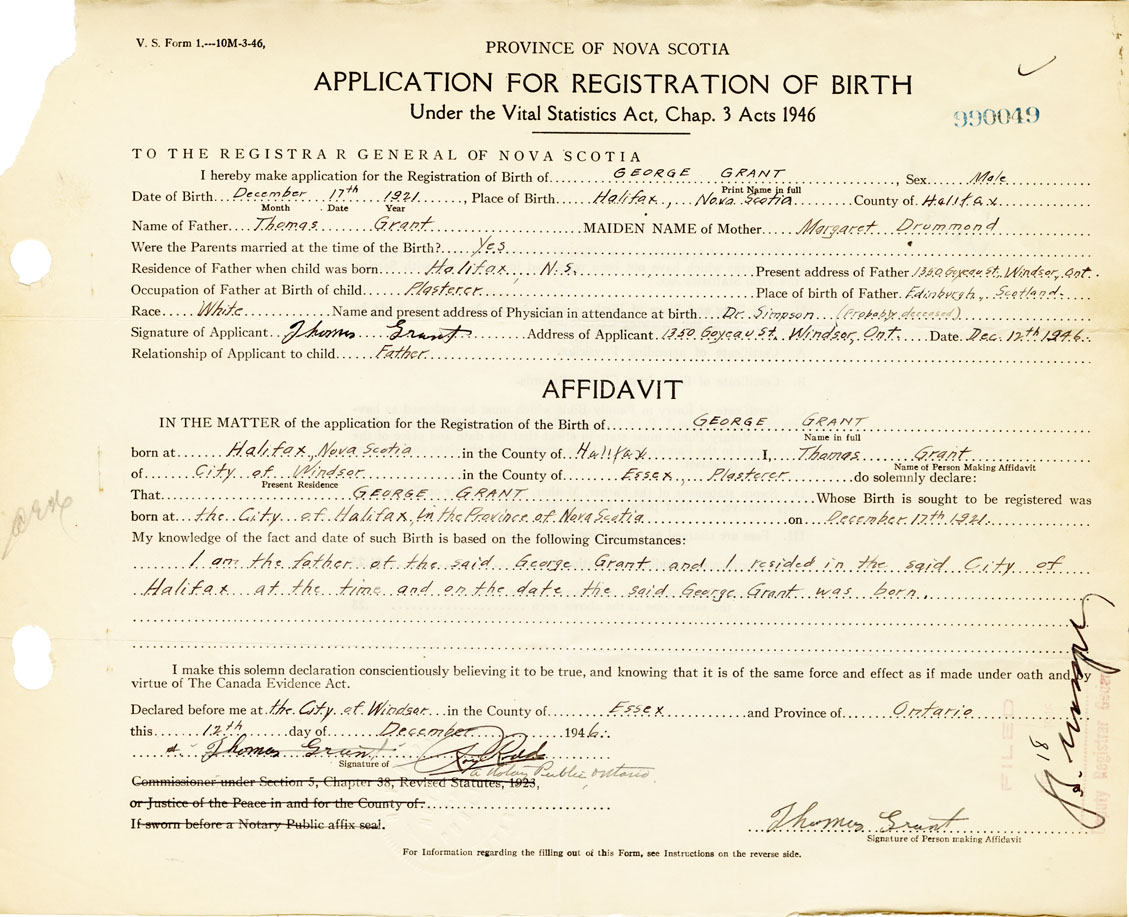 V. S. Form 1.---10M-3-46,
PROVINCE OF NOVA SCOTIA
APPLICATION FOR REGISTRATION OF BIRTH
Under the Vital Statistics Act, Chap. 3 Acts 1946
990049
TO THE REGISTRAR GENERAL OF NOVA SCOTIA
I hereby make application for the Registration of Birth of GEORGE GRANT, Sex Male
Print Name in full
Date of Birth December 17th 1921, Place of Birth Halifax, Nova Scotia County of Halifax
Month Date Year
Name of Father Thomas Grant MAIDEN NAME of Mother Margaret Drummond
Were the Parents married at the time of the Birth? Yes
Residence of Father when child was born Halifax, N.S. Present address of Father 1350 Goyeau St., Windsor, Ont.
Occupation of Father at Birth of child Plasterer Place of birth of Father Edinburgh, Scotland.
Race White Name and present address of Physician in attendance at birth Dr. Simpson (Probably deceased)
Signature of Applicant Thomas Grant Address of Applicant 1350 Goyeau St., Windsor, Ont. Date Dec. 12th 1946.
Relationship of Applicant to child Father
AFFIDAVIT
IN THE MATTER of the application for the Registration of the Birth of GEORGE GRANT
Name in full
born at Halifax, Nova Scotia in the County of Halifax I, Thomas Grant
Name of Person Making Affidavit
of City of Windsor in the County of Essex, Plasterer do solemnly declare:
Present Residence
That GEORGE GRANT Whose Birth is sought to be registered was
born at the City of Halifax, in the Province of Nova Scotia on December 17th 1921.
My knowledge of the fact and date of such Birth is based on the following Circumstances:
I am the father of the said George Grant and I resided in the said City of
Halifax at the time and on the date the said George Grant was born.
I make this solemn declaration conscientiously believing it to be true, and knowing that it is of the same force and effect as if made under oath and by
virtue of The Canada Evidence Act.
Declared before me at the City of Windsor in the County of Essex and Province of Ontario
this 12th day of December 1946.
Thomas Grant
Signature of
a Notary Public, Ontario
Commissioner under Section 5, Chapter 38, Revised Statutes, 1923,
or Justice of the Peace in and for the County of
If sworn before a Notary Public affix seal.
Thomas Grant
Signature of Person making Affidavit
For Information regarding the filling out of this Form, see Instructions on the reverse side.
FILED
18
Deputy Registrar General